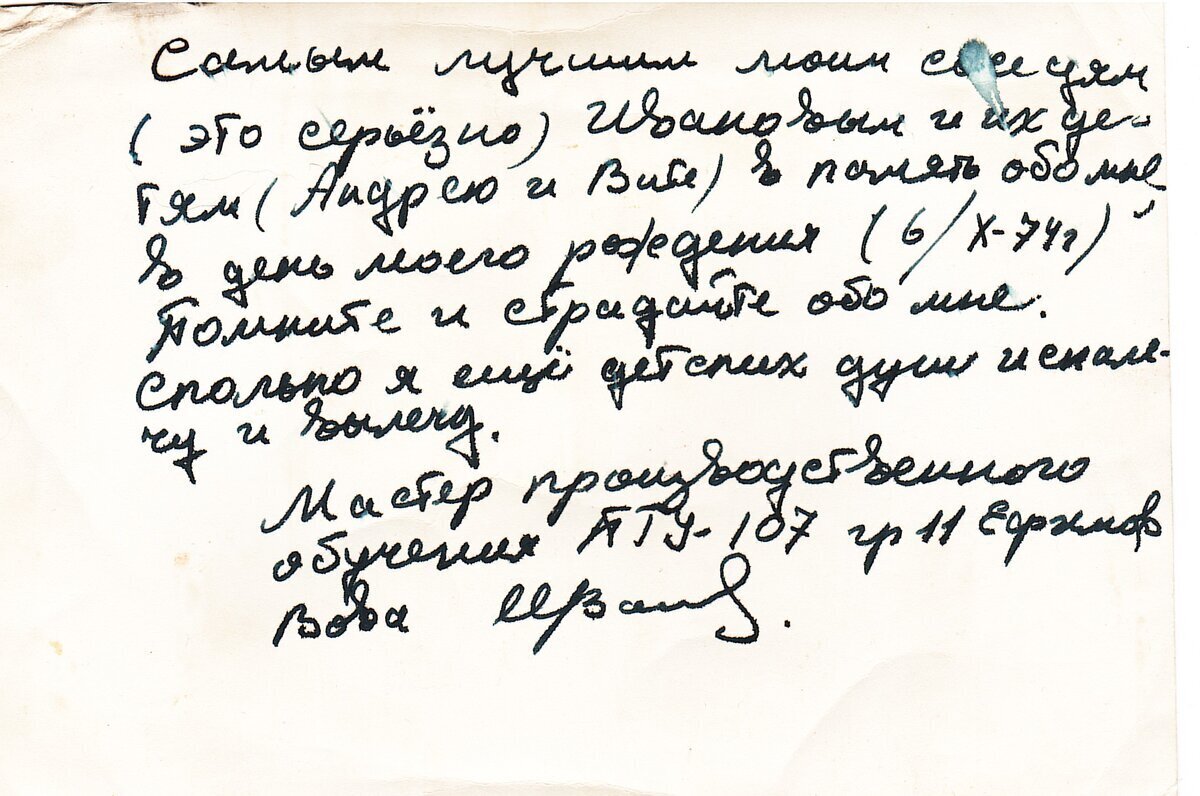 Самым лучшим моим соседям
(это серьёзно) Ивановым и их де-
тям (Андрею и Вите) в память обо мне
в день моего рождения (6/X-74г)
Помните и страдайте обо мне.
Сколько я ещё детских душ искале-
чу и вылечу.
Мастер производственного
обучения ПТУ-107 гр 11 Ефимов
Вова